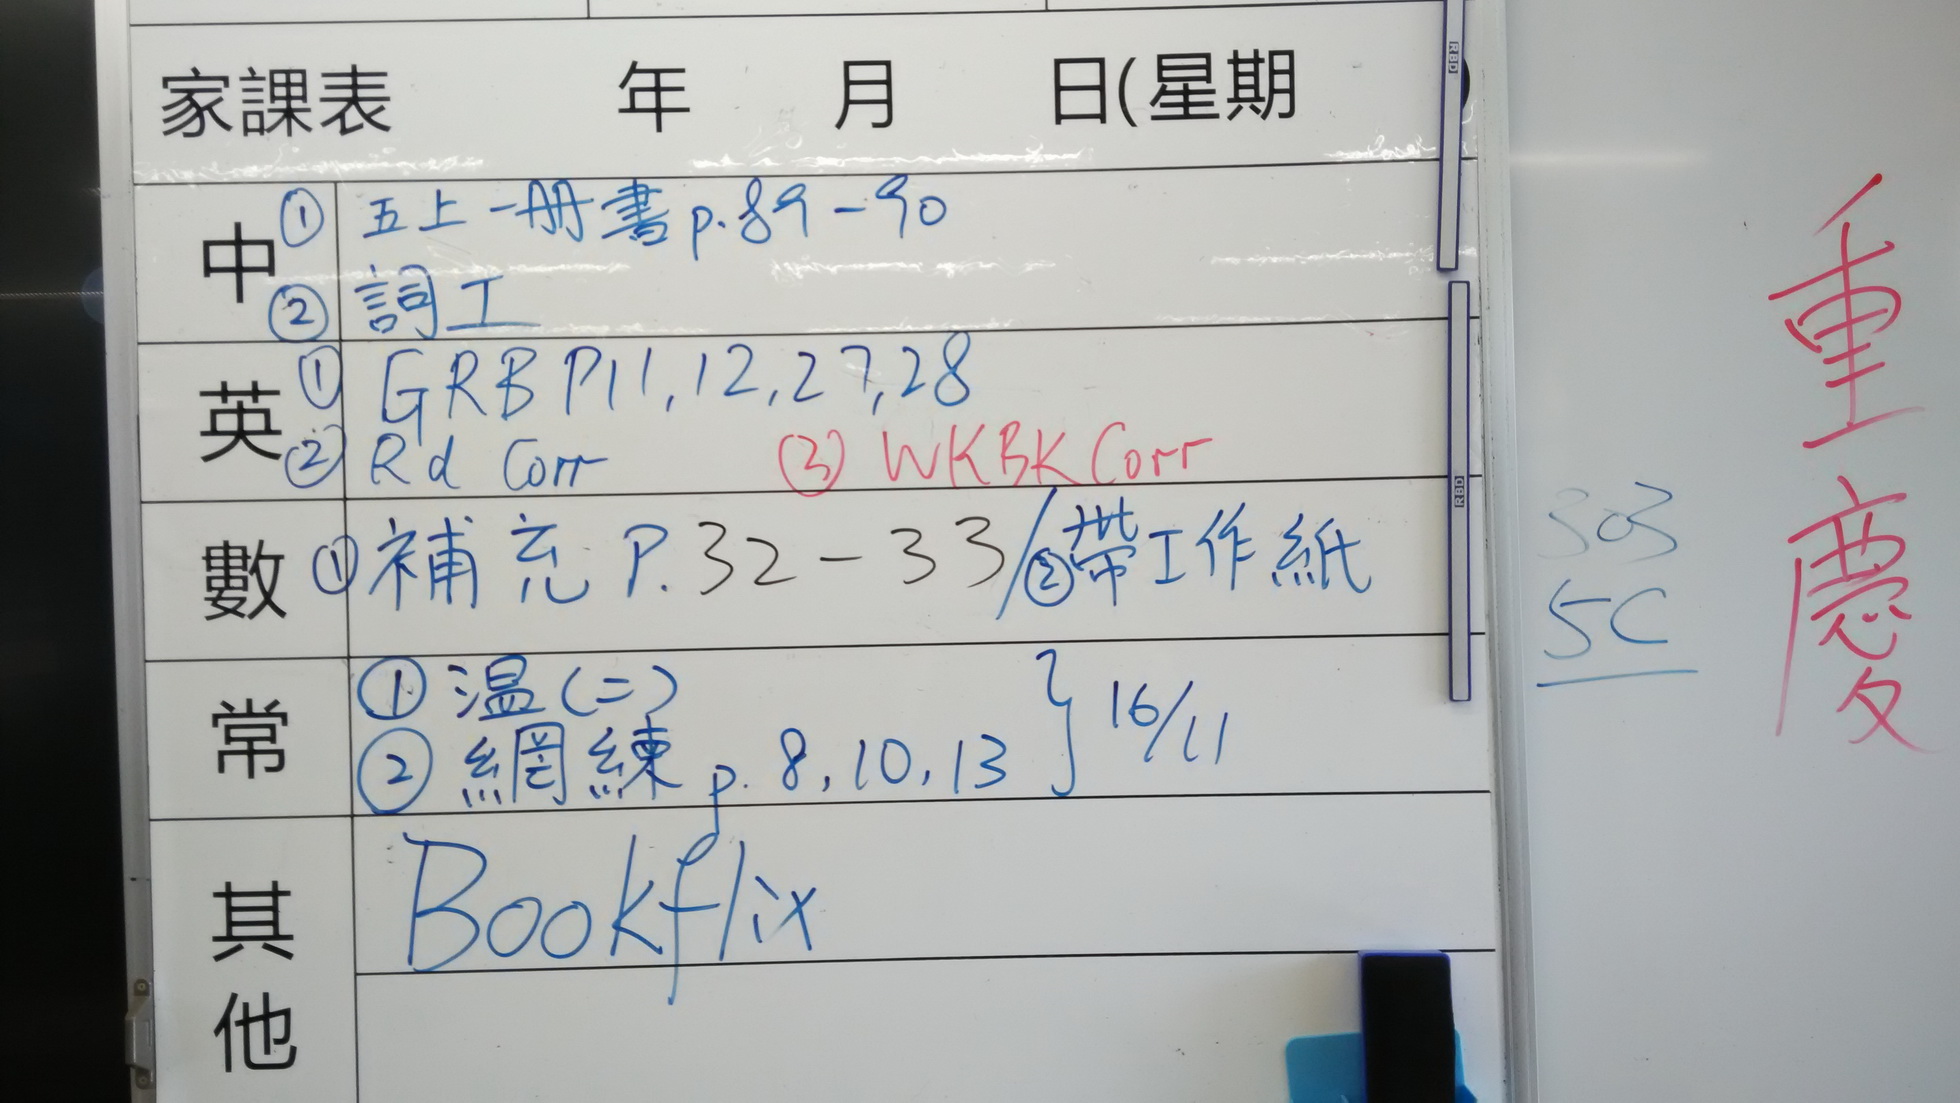 家課表 年 月 日(星期 )
中 ① 五上一册書 p.89-90
② 詞工
英 ① GRB P11,12,27,28
② Rd Corr ③ WKBK Corr
數 ① 補充 P.32-33/②帶工作紙
常 ① 温(二)
② 網練 p.8,10,13 } 16/11
其他 Bookflix
RBD
RBD
303
5C
重慶